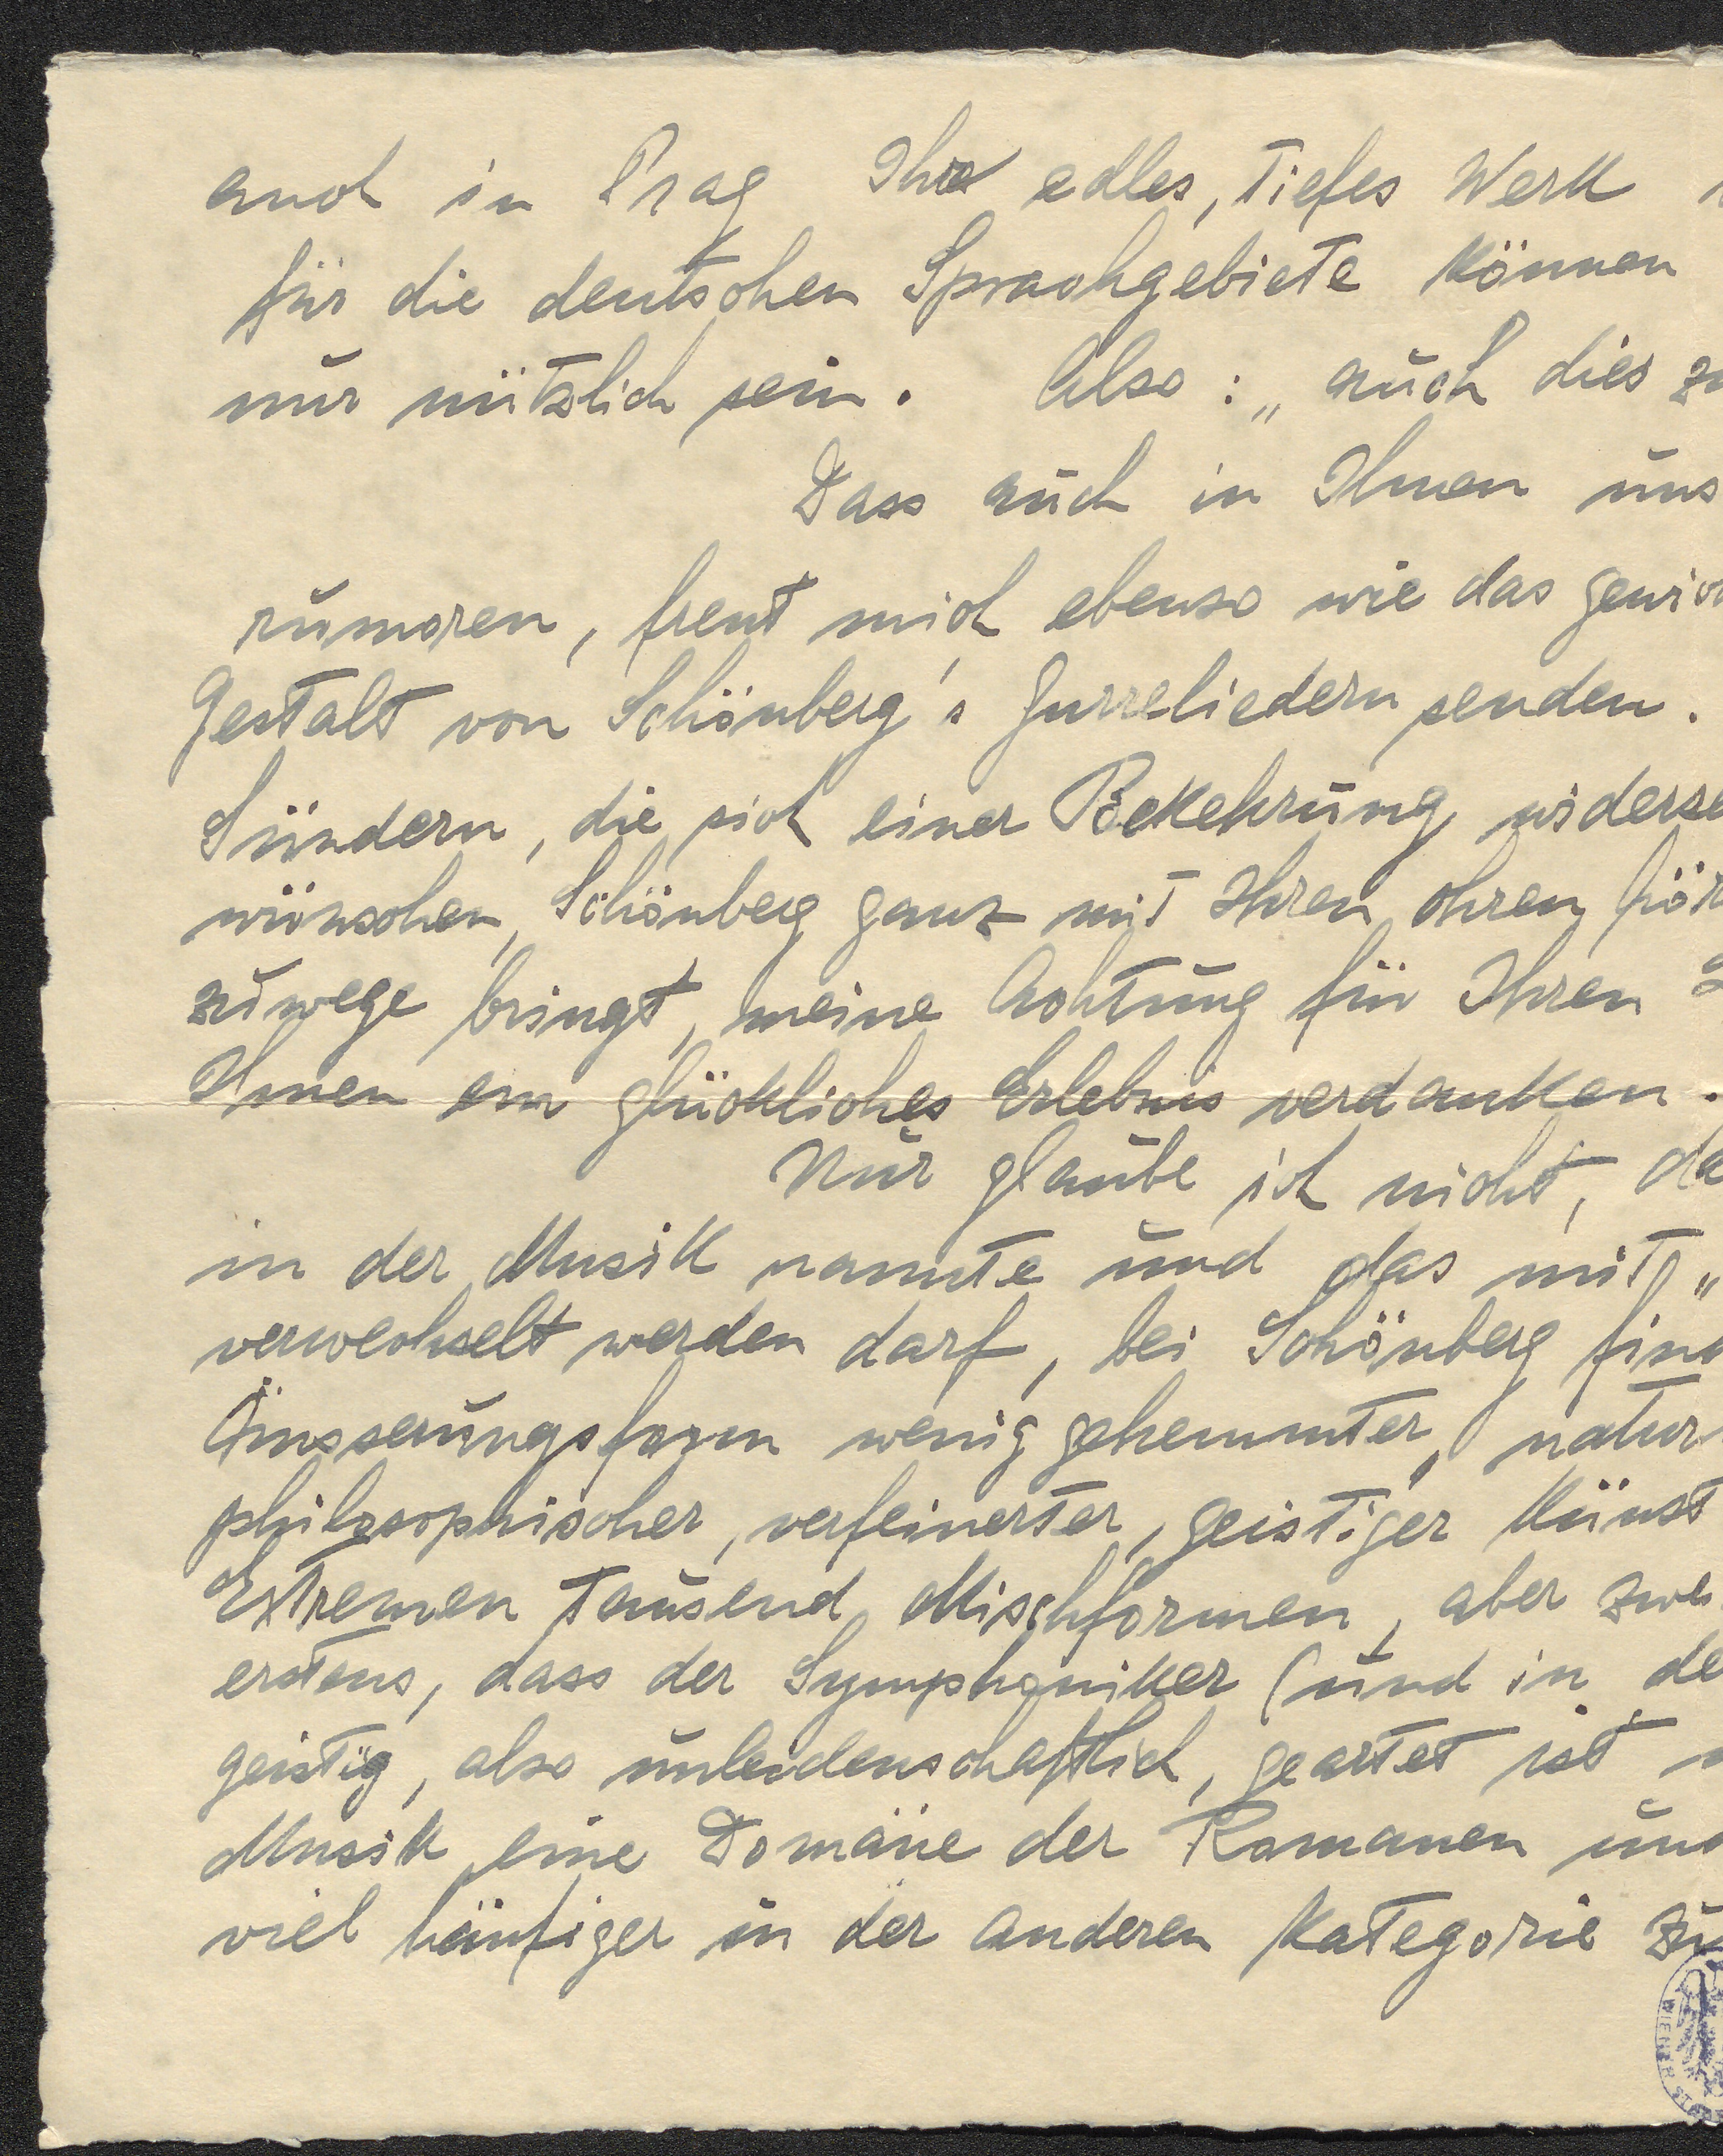 auch in Prag Ihr edles, tiefes Werk
für die deutschen Sprachgebiete können
nur nützlich sein. Also: „auch dies zu
Dass auch in Ihnen uns
rumoren, freut mich ebenso wie das gewich
Gestalt von Schönberg's Gurreliedern senden.
Sündern, die sich einer Bekehrung widerse
wünschen, Schönberg ganz mit Ihren Ohren hör
zuwege bringt, meine Achtung für Ihren
Ihnen ein glückliches Erlebnis verdanken.
Nur glaube ich nicht, da
in der Musik nannte und das mit „
verwechselt werden darf, bei Schönberg find
Äusserungsform wenig gehemmter, natur
philosophischer, verfeinerter, geistiger Künst
Extremen tausend Mischformen, aber zwei
erstens, dass der Symphoniker (und in de
geistig, also unleidenschaftlich, geartet ist
Musik eine Domäne der Romanen und
viel häufiger in der anderen Kategorie zu
WIENER